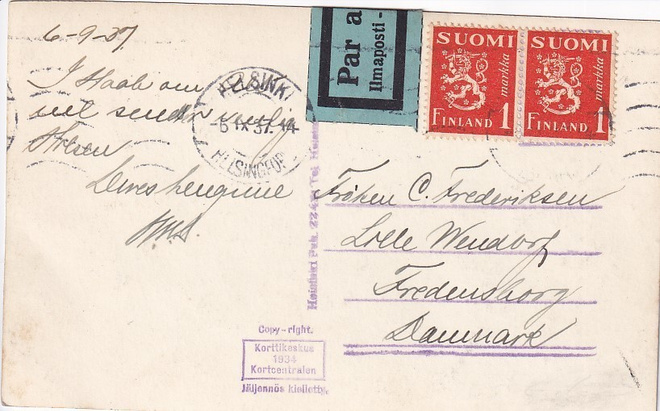 6-9-37.
I Haab om
vel
Hilsen
HELSINKI
-6.IX.37.14
HELSINGFORS
Par a
Ilmaposti -
SUOMI
markka
FINLAND 1
SUOMI
markka
FINLAND 1
Helsinki Puh.
Frøken C. Frederiksen
Lille Wendorf
Fredensborg
Danmark
Copy-right.
Korttikeskus
1934
Kortcentralen
Jäljennös kielletty.